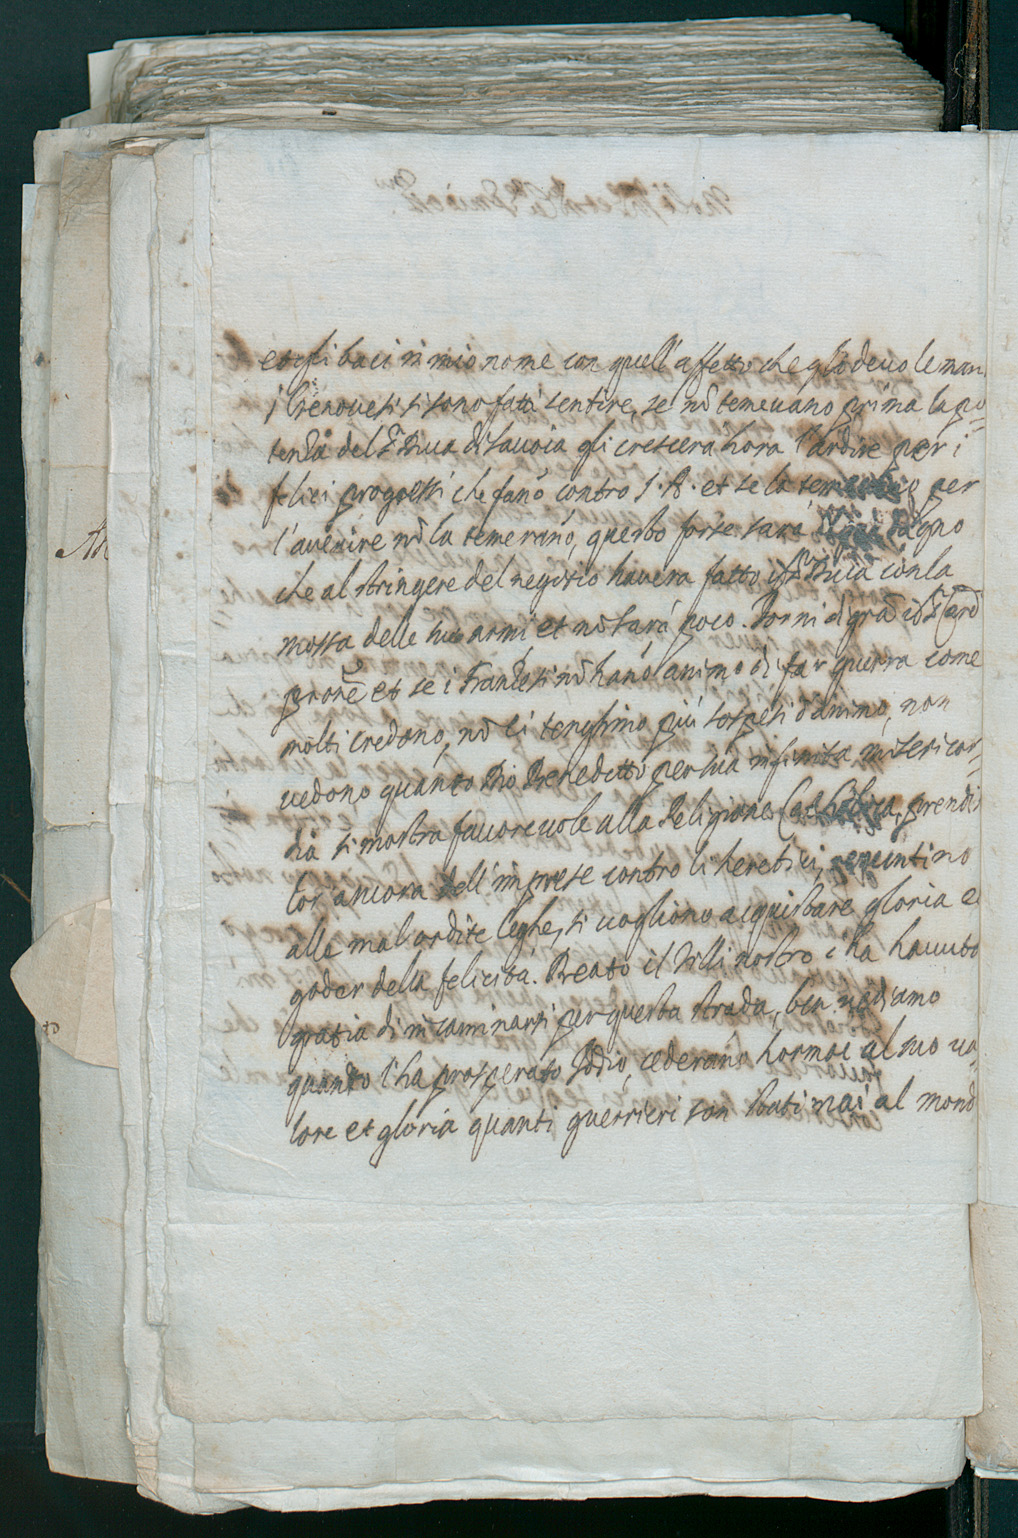 et gli baci in mio nome con quell'affetto che gli devo le man
i Genovesi si sono fatti sentire, se nõ temevano prima la po=
tenza del Duca di Savoia gli crescera hora l'ardire per i
felici progressi che fanno contro S. A. et se la per
l'avenire nõ la temeranno, questo forse sarà
che al stringere del negotio havera fatto il Duca con la
mossa delle sue armi et nõ sarà poco. Torni di gra
et se i Francesi nõ hanno animo di far guerra come
molti credono, nõ ci tenghino più sospesi d'animo, non
vedono quanto Dio Benedetto per sua infinita misericor=
dia si mostra favorevole alla Religione Catholica, prendi
lor' ancora dell'imprese contro li heretici,
alle mal ordite leghe, si vogliono acquistare gloria e
goder della felicita. Beato il Tilli nostro c'ha havuto
gratia di incaminarsi per questa strada, ben vediamo
quanto l'ha prosperato Iddio, cederanno hormai al suo va
lore et gloria quanti guerrieri son stati mai al mond